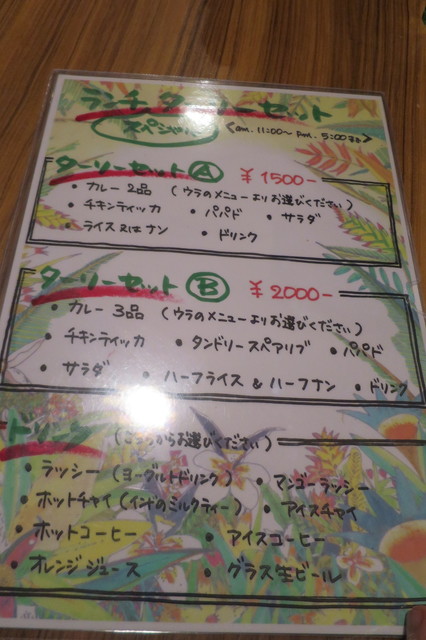 ランチ ターリーセット
スペシャル <am. 11:00〜 pm. 5:00まで>
ターリーセット Ⓐ ¥1500-
・カレー 2品 (ウラのメニューよりお選びください)
・チキンティッカ ・パパド ・サラダ
・ライス又はナン ・ドリンク
ターリーセット Ⓑ ¥2000-
・カレー 3品 (ウラのメニューよりお選びください)
・チキンティッカ ・タンドリースペアリブ ・パパド
・サラダ ・ハーフライス & ハーフナン ・ドリンク
ドリンク (こちらからお選びください)
・ラッシー(ヨーグルトドリンク) ・マンゴーラッシー
・ホットチャイ(インドのミルクティー) ・アイスチャイ
・ホットコーヒー ・アイスコーヒー
・オレンジジュース ・グラス生ビール